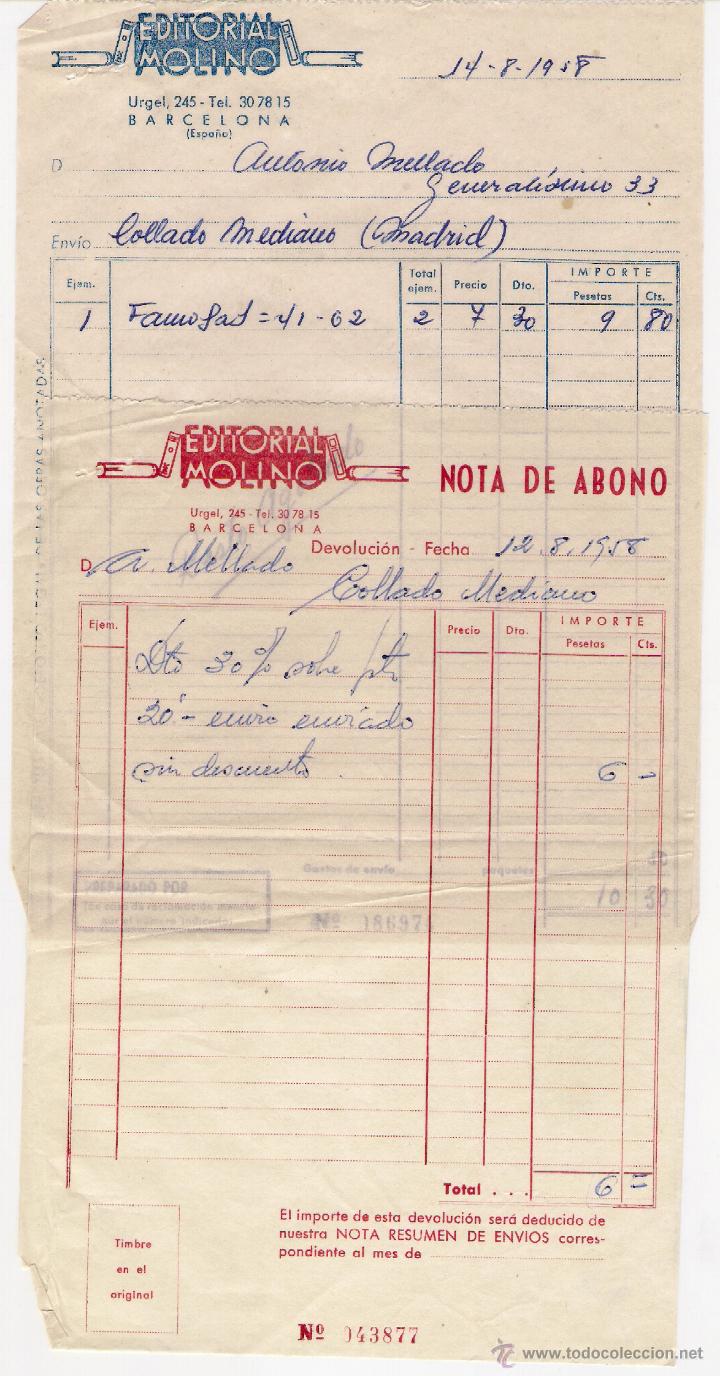 EDITORIAL
MOLINO
14-8-1958
Urgel, 245 - Tel. 30 78 15
BARCELONA
(España)
D Antonio Mellado
Generalísimo 33
Envío Collado Mediano (Madrid)
Ejem. Total ejem. Precio Dto. IMPORTE
Pesetas Cts.
1 Famosas = 41-62 2 7 30 9 80
EDITORIAL
MOLINO
NOTA DE ABONO
Urgel, 245 - Tel. 30 78 15
BARCELONA
Devolución - Fecha 12.8.1958
D A. Mellado
Collado Mediano
Ejem. Precio Dto. IMPORTE
Pesetas Cts.
Dto 30% sobre pts
20'- envio enviado
sin descuento. 6 -
Gastos de envío paquetes
PREPARADO POR
10 30
Nº 18697
Total . . . 6 =
El importe de esta devolución será deducido de
nuestra NOTA RESUMEN DE ENVIOS corres-
pondiente al mes de
Timbre
en el
original
Nº 043877
www.todocoleccion.net